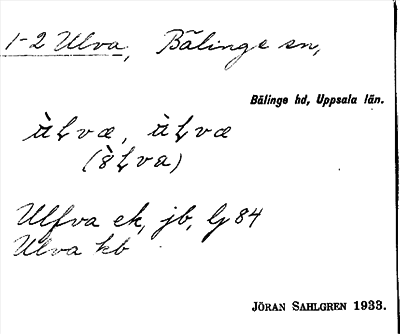 1-2 Ulva, Bälinge sn,
Bälinge hd, Uppsala län.
Ulfva ek, jb, lj 84
Ulva kb
JÖRAN SAHLGREN 1933.